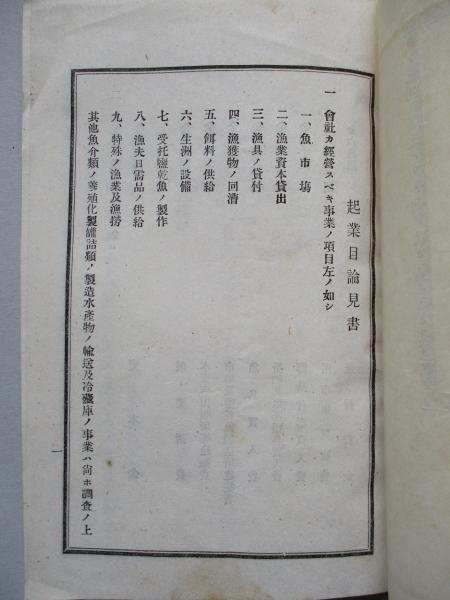 起業目論見書
一 會社カ經營スベキ事業ノ項目左ノ如シ
一、魚市場
二、漁業資本貸出
三、漁具ノ貸付
四、漁獲物ノ回漕
五、餌料ノ供給
六、生洲ノ設備
七、受托鹽乾魚ノ製作
八、漁夫日需品ノ供給
九、特殊ノ漁業及漁撈
其他魚介類ノ養殖化製罐詰類ノ製造水產物ノ輸送及冷藏庫ノ事業ハ尙ホ調查ノ上
一